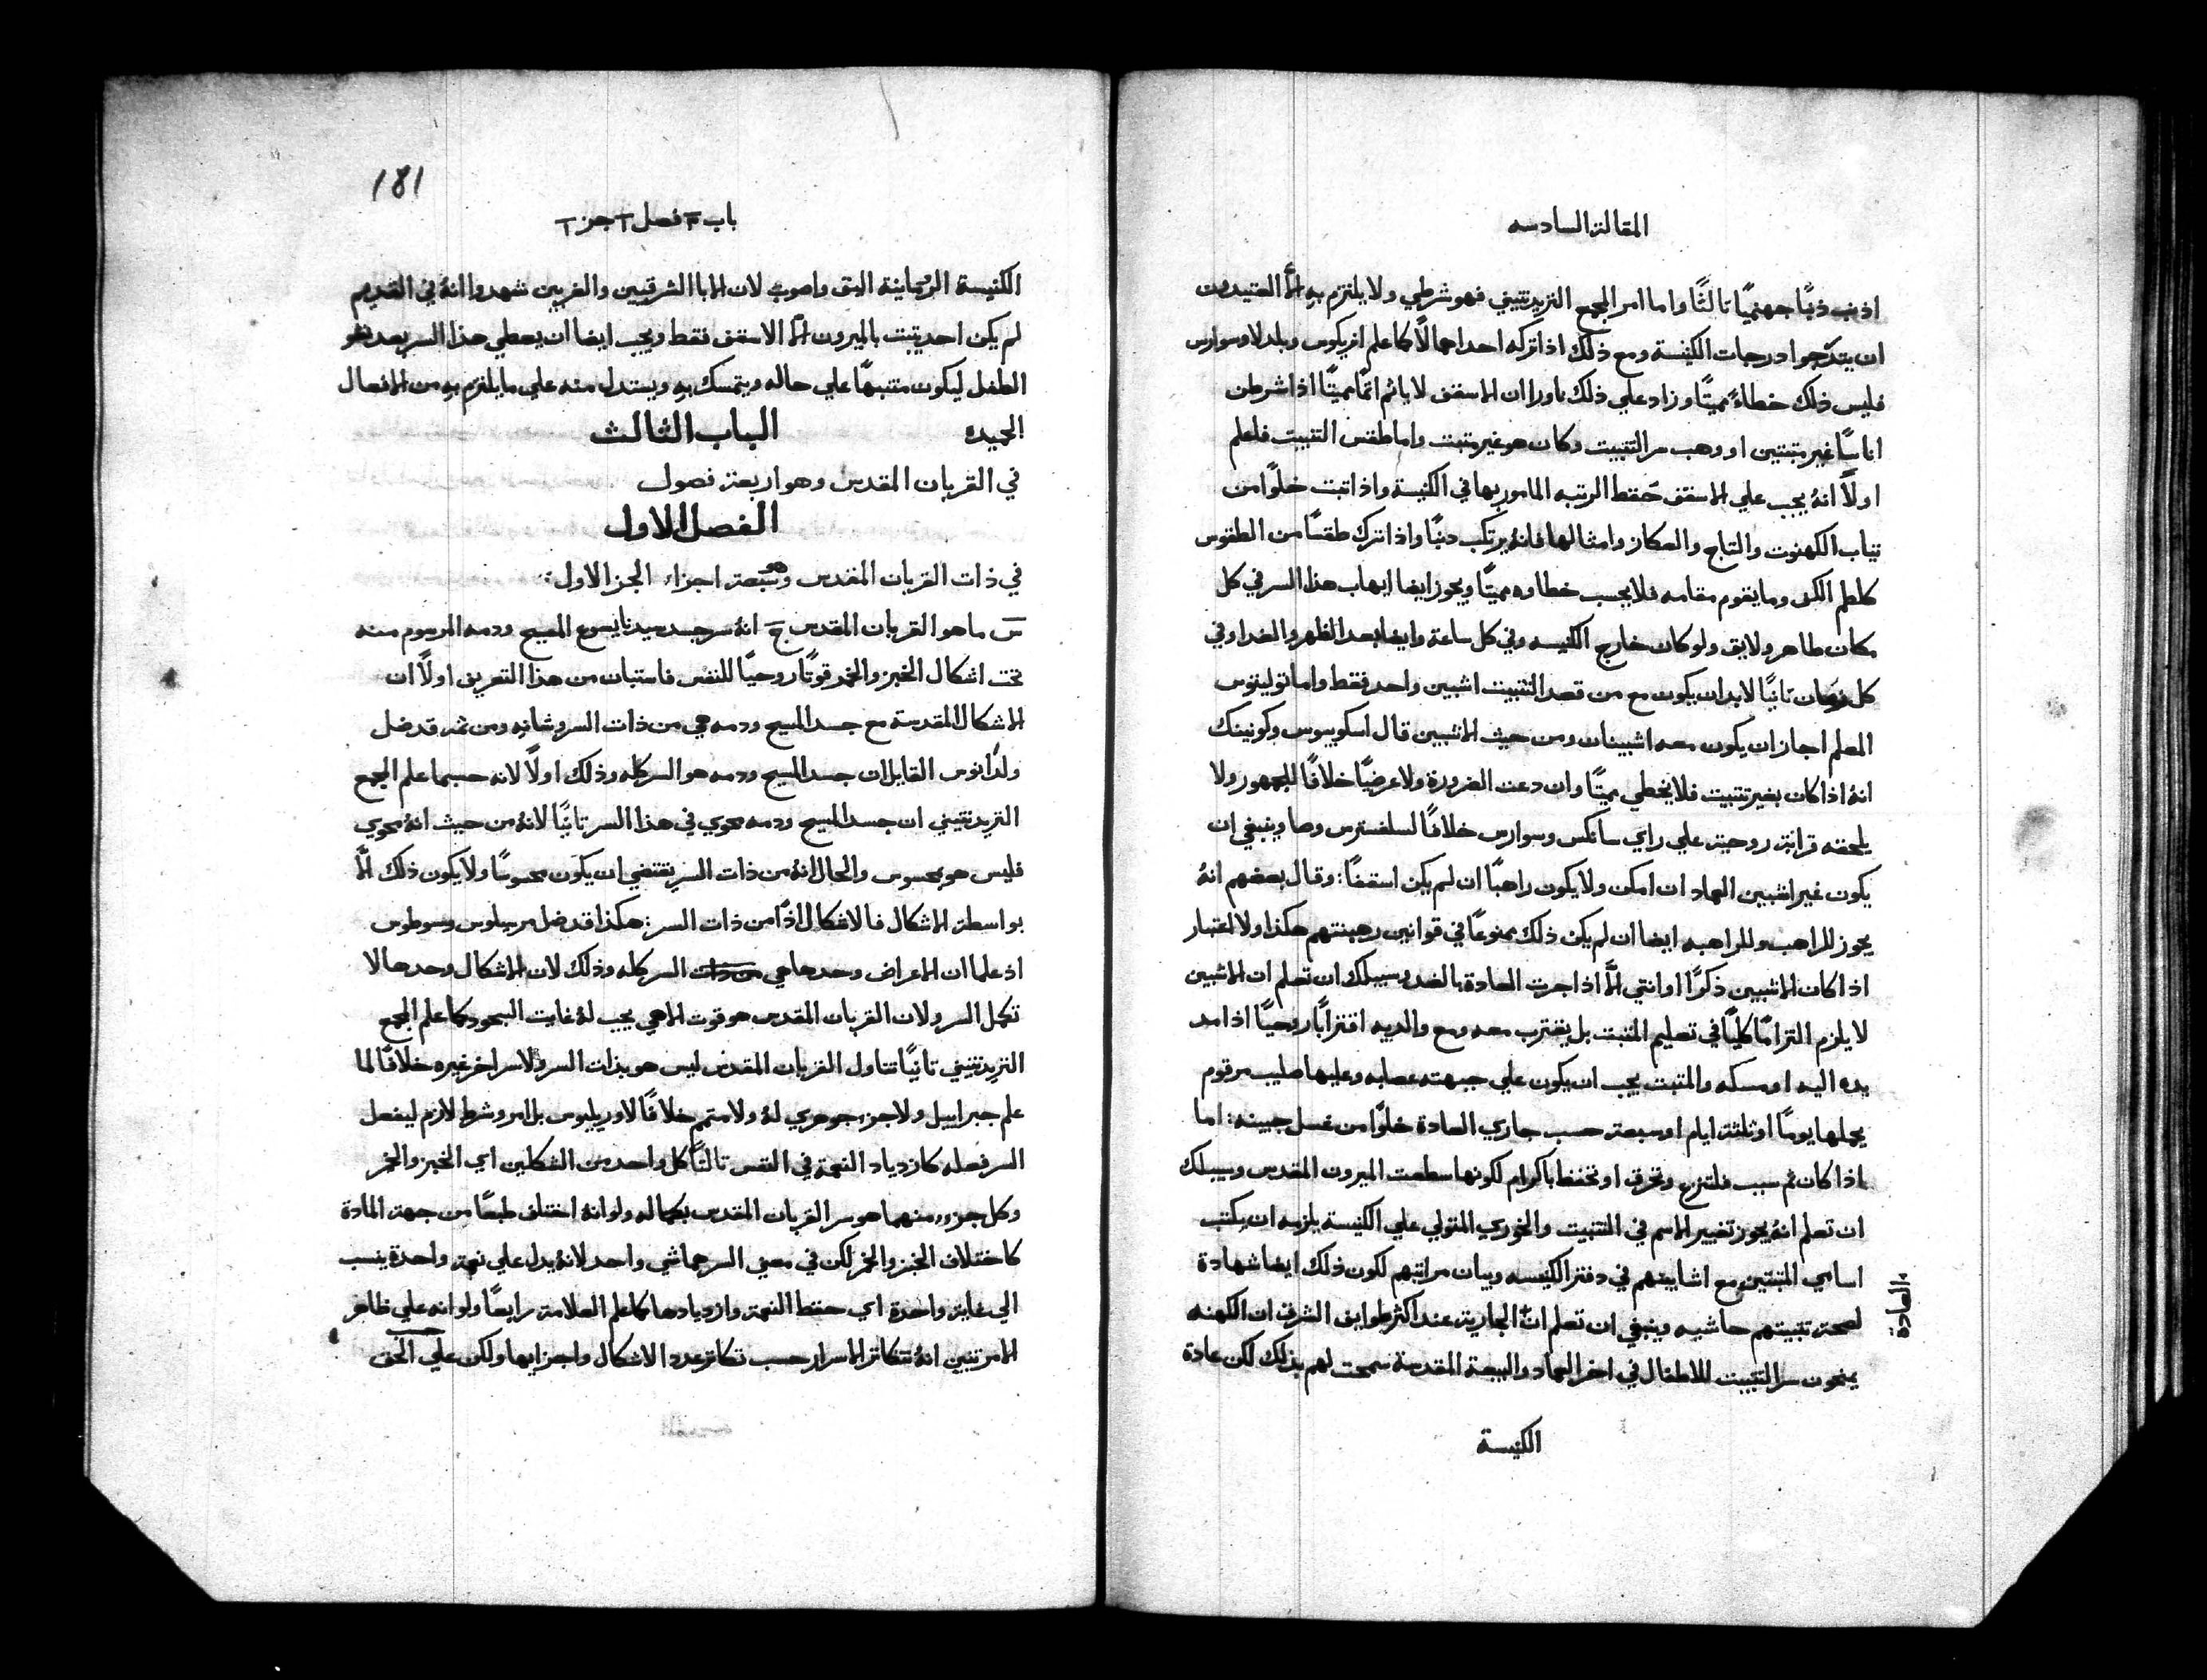 المقالة السادسه
اذنب ذنبًا جهنميًا ثالثًا واما امر المجمع التريدنتيني فهو شرطي ولا يلتزم به الّا العتيدون
ان يتدرجوا درجات الكنيسة ومع ذلك اذا تركه احداهما لا كما علم انريكوس وبلدلا وسوارس
فليس ذلك خطاءً مميتًا وزاد علي ذلك ناورا ان الاسقف لا ياثم اثمًا مميتًا اذا شرطن
اناسًا غير مثبتين او وهب سر التثبيت وكان هو غير مثبت واما طقس التثبيت فاعلم
اولًا انهُ يجب علي الاسقف حفظ الرتبه المامور بها في الكنيسة واذا ثبت خلوًا من
ثياب الكهنوت والتاج والعكاز وامثالها فانهُ يرتكب دنبًا واذا ترك طقسًا من الطقوس
كلطم الكف وما يقوم مقامه فلا يحسب خطاوه مميتًا ويجوز ايضا ايهاب هذا السر في كل
مكان طاهر ولايق ولو كان خارج الكنيسه وفي كل ساعة وايضا بعد الظهر والغدا وفي
كل زمان ثانيًا لابد ان يكون مع من قصد التثبيت اشبين واحد فقط واما نولينوس
المعلم اجاز ان يكون معه اشبينان ومن حيث الاشبين قال اسكوبيوس وكونينك
انهُ اذا كان بغير تثبيت فلا يخطي مميتًا وان دعت الضرورة ولا عرضيًا خلافًا للجمهور ولا
يلحقه قرابة روحية علي راي سانكس وسوارس خلافًا لسلفسترس وصا وينبغي ان
يكون غير اشبين العماد ان امكن ولا يكون راهبًا ان لم يكن اسقفًا: وقال بعضهم انهُ
يجوز للراهب وللراهبه ايضا ان لم يكن ذلك ممنوعًا في قوانين رهبنتهم هكذا ولا اعتبار
اذا كان الاشبين ذكرًا او انثي الّا اذا جرت العادة بالضد وسبيلك ان تعلم ان الاشبين
لا يلزم التزامًا كليًا في تعليم المثبت بل يقترب معه ومع والديه اقترابًا روحيًا اذا مد
يده اليه او مسكه والمثبت يجب ان يكون علي جبهته عصابه وعليها صليب مرقوم
يحملها يومًا او ثلثة ايام او سبعة حسب جاري العادة خلوًا من غسل جبينه: اما
اذا كان ثم سبب فلتنزع وتحرق او تحفظ باكرام لكونها سطعت الميرون المقدس وسبيلك
ان تعلم انهُ يجوز تغيير الاسم في التثبيت والخوري المتولي علي الكنيسة يلزمه ان يكتب
اسامي المثبتين مع اشابينهم في دفتر الكنيسه وبيان مراتبهم لكون ذلك ايضا شهادة
لصحة تثبيتهم حاشيه وينبغي ان تعلم ان الجارية عند اكثر طوايف الشرق ان الكهنه
العادة
يمنحون سر التثبيت للاطفال في اخر العماد والبيعة المقدسة سمحت لهم بذلك لكن عادة
الكنيسة
181
باب ٣ فصل ١ جز ١
الكنيسة الرومانية اليق واصوب لان الابا الشرقيين والغربيين شهدوا انهُ في القديم
لم يكن احد يثبت بالميرون الّا الاسقف فقط ويجب ايضا ان يعطي هذا السر بعد نمو
الطفل ليكون متنبهًا علي حاله ويتمسك به ويستدل منه علي ما يلتزم به من الافعال
الحميده
الباب الثالث
في القربان المقدس وهو اربعة فصول
الفصل الاول
في ذات القربان المقدس وهو سبعة اجزاء الجز الاول:
سَ ما هو القربان المقدس جَ انهُ سر جسد سيدنا يسوع المسيح ودمه المرسوم منه
تحت اشكال الخبز والخمر قوتًا روحيًا للنفس فاستبان من هذا التعريف اولًا ان
الاشكال المقدسة مع جسد المسيح ودمه هي من ذات السر وشانه ومن ثم قد ضل
ولدانوس القايل ان جسد المسيح ودمه هو السر كله وذلك اولًا لانه حسبما علم المجمع
التريدنتيني ان جسد المسيح ودمه محوي في هذا السر ثانيًا لانهُ من حيث انهُ محوي
فليس هو بمحسوس والحال انهُ من ذات السر يقتضي ان يكون محسوسًا ولا يكون ذلك الّا
بواسطة الاشكال فالاشكال اذًا من ذات السر: هكذا قد ضل مرسيلوس وسوطوس
اذ علما ان الاعراض وحدها هي السر كله وذلك لان الاشكال وحدها لا
تكمل السر ولان القربان المقدس هو قوت الاهي يجب لهُ غاية السجود كما علم المجمع
التريدنتيني ثانيًا تناول القربان المقدس ليس هو بذات السر ولا سر اخر غيره خلافًا لما
علم جبراييل ولا جزء جوهري لهُ ولا متمم خلافًا لاوريليوس بل امر وشرط لازم ليفعل
السر فعله كازدياد النعمة في النفس ثالثًا كل واحد من الشكلين اي الخبز والخمر
وكل جزء منهما هو سر القربان المقدس بكماله ولو انهُ اختلف طبعًا من جهة المادة
كاختلاف الخبز والخمر لكن في معني السر هما شي واحد لانهُ يدل علي نعمة واحدة ينسب
الي غاية واحدة اي حفظ النعمة وازديادها كما علم العلامة رابعًا ولو انه علي ظاهر
الامر تبين انهُ تتكاثر الاسرار حسب تكاثر عدد الاشكال واجزايها ولكن علي الحق